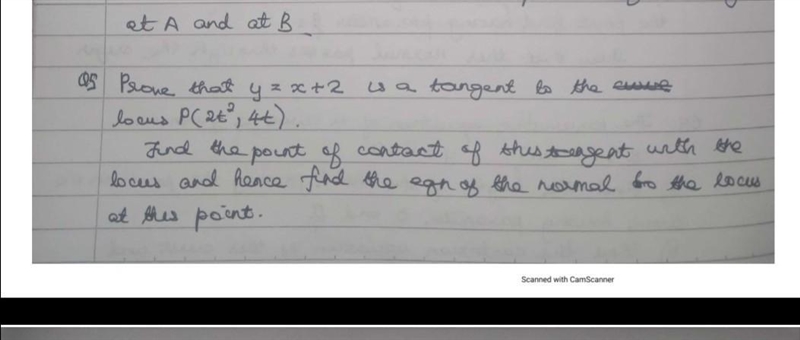 at A and at B.
Q5 Prove that y = x + 2 is a tangent to the curve
locus P(2t², 4t).
Find the point of contact of this tangent with the
locus and hence find the eqn of the normal to the locus
at this point.
Scanned with CamScanner